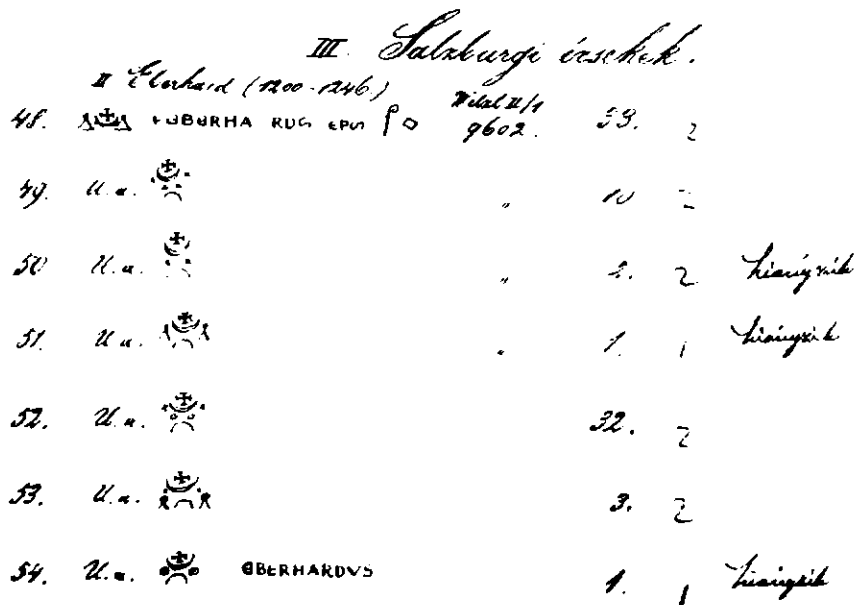 III. Salzburgi érsekek.
II Eberhard (1200-1246)
48. EBERHA RUS EPUS 9602. 59. 2
49. U.a. " 10 2
50 U.a. " 2. 2 hiányzik
51. U.a. " 1. 1 hiányzik
52. U.a. 32. 2
53. U.a. 3. 2
54. U.a. EBERHARDVS 1. 1 hiányzik